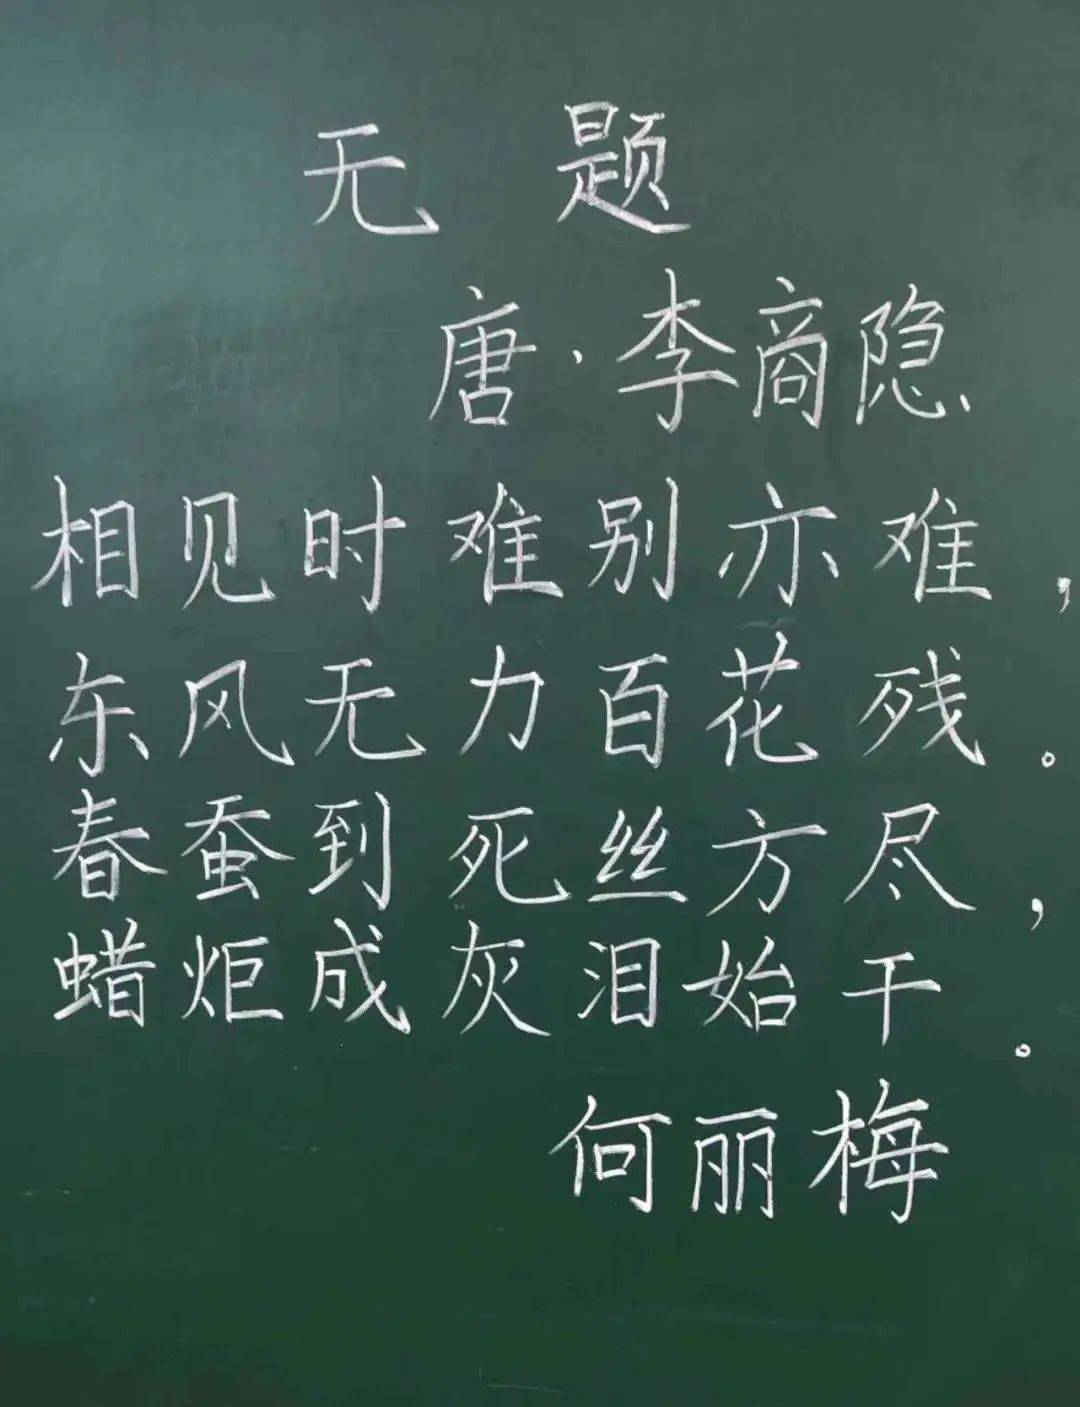 无题
唐·李商隐
相见时难别亦难，
东风无力百花残。
春蚕到死丝方尽，
蜡炬成灰泪始干。
何丽梅